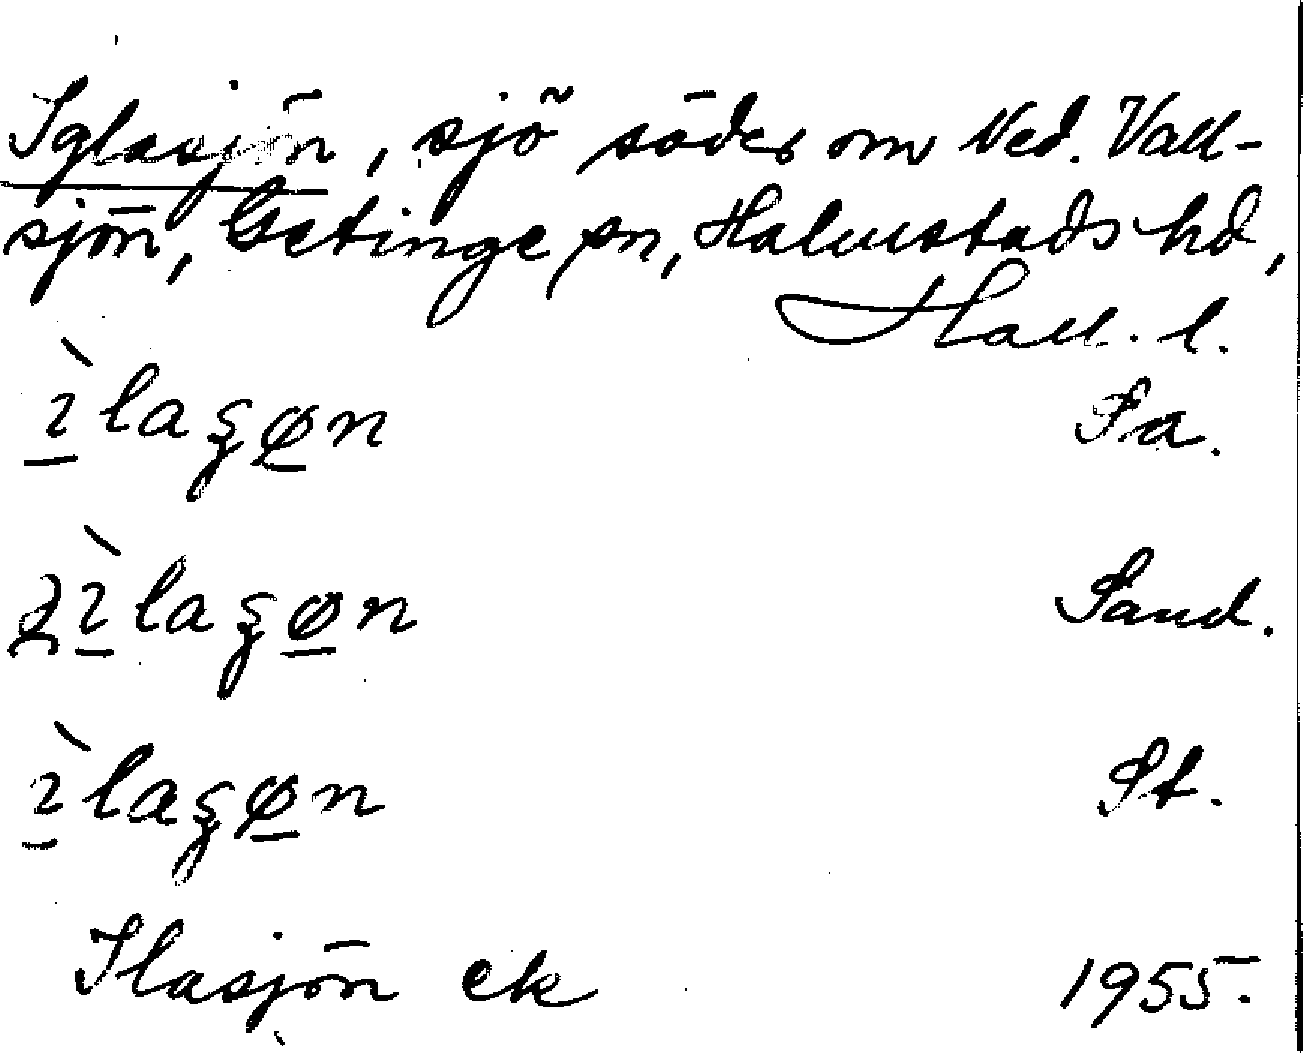 Iglasjön, sjö söder om Ned. Vall-
sjön, Getinge sn, Halmstads hd,
Hall. l.
ìlaʂøn Sa.
ìlaʂøn Sand.
ìlaʂøn St.
Ilasjön ek 1955.